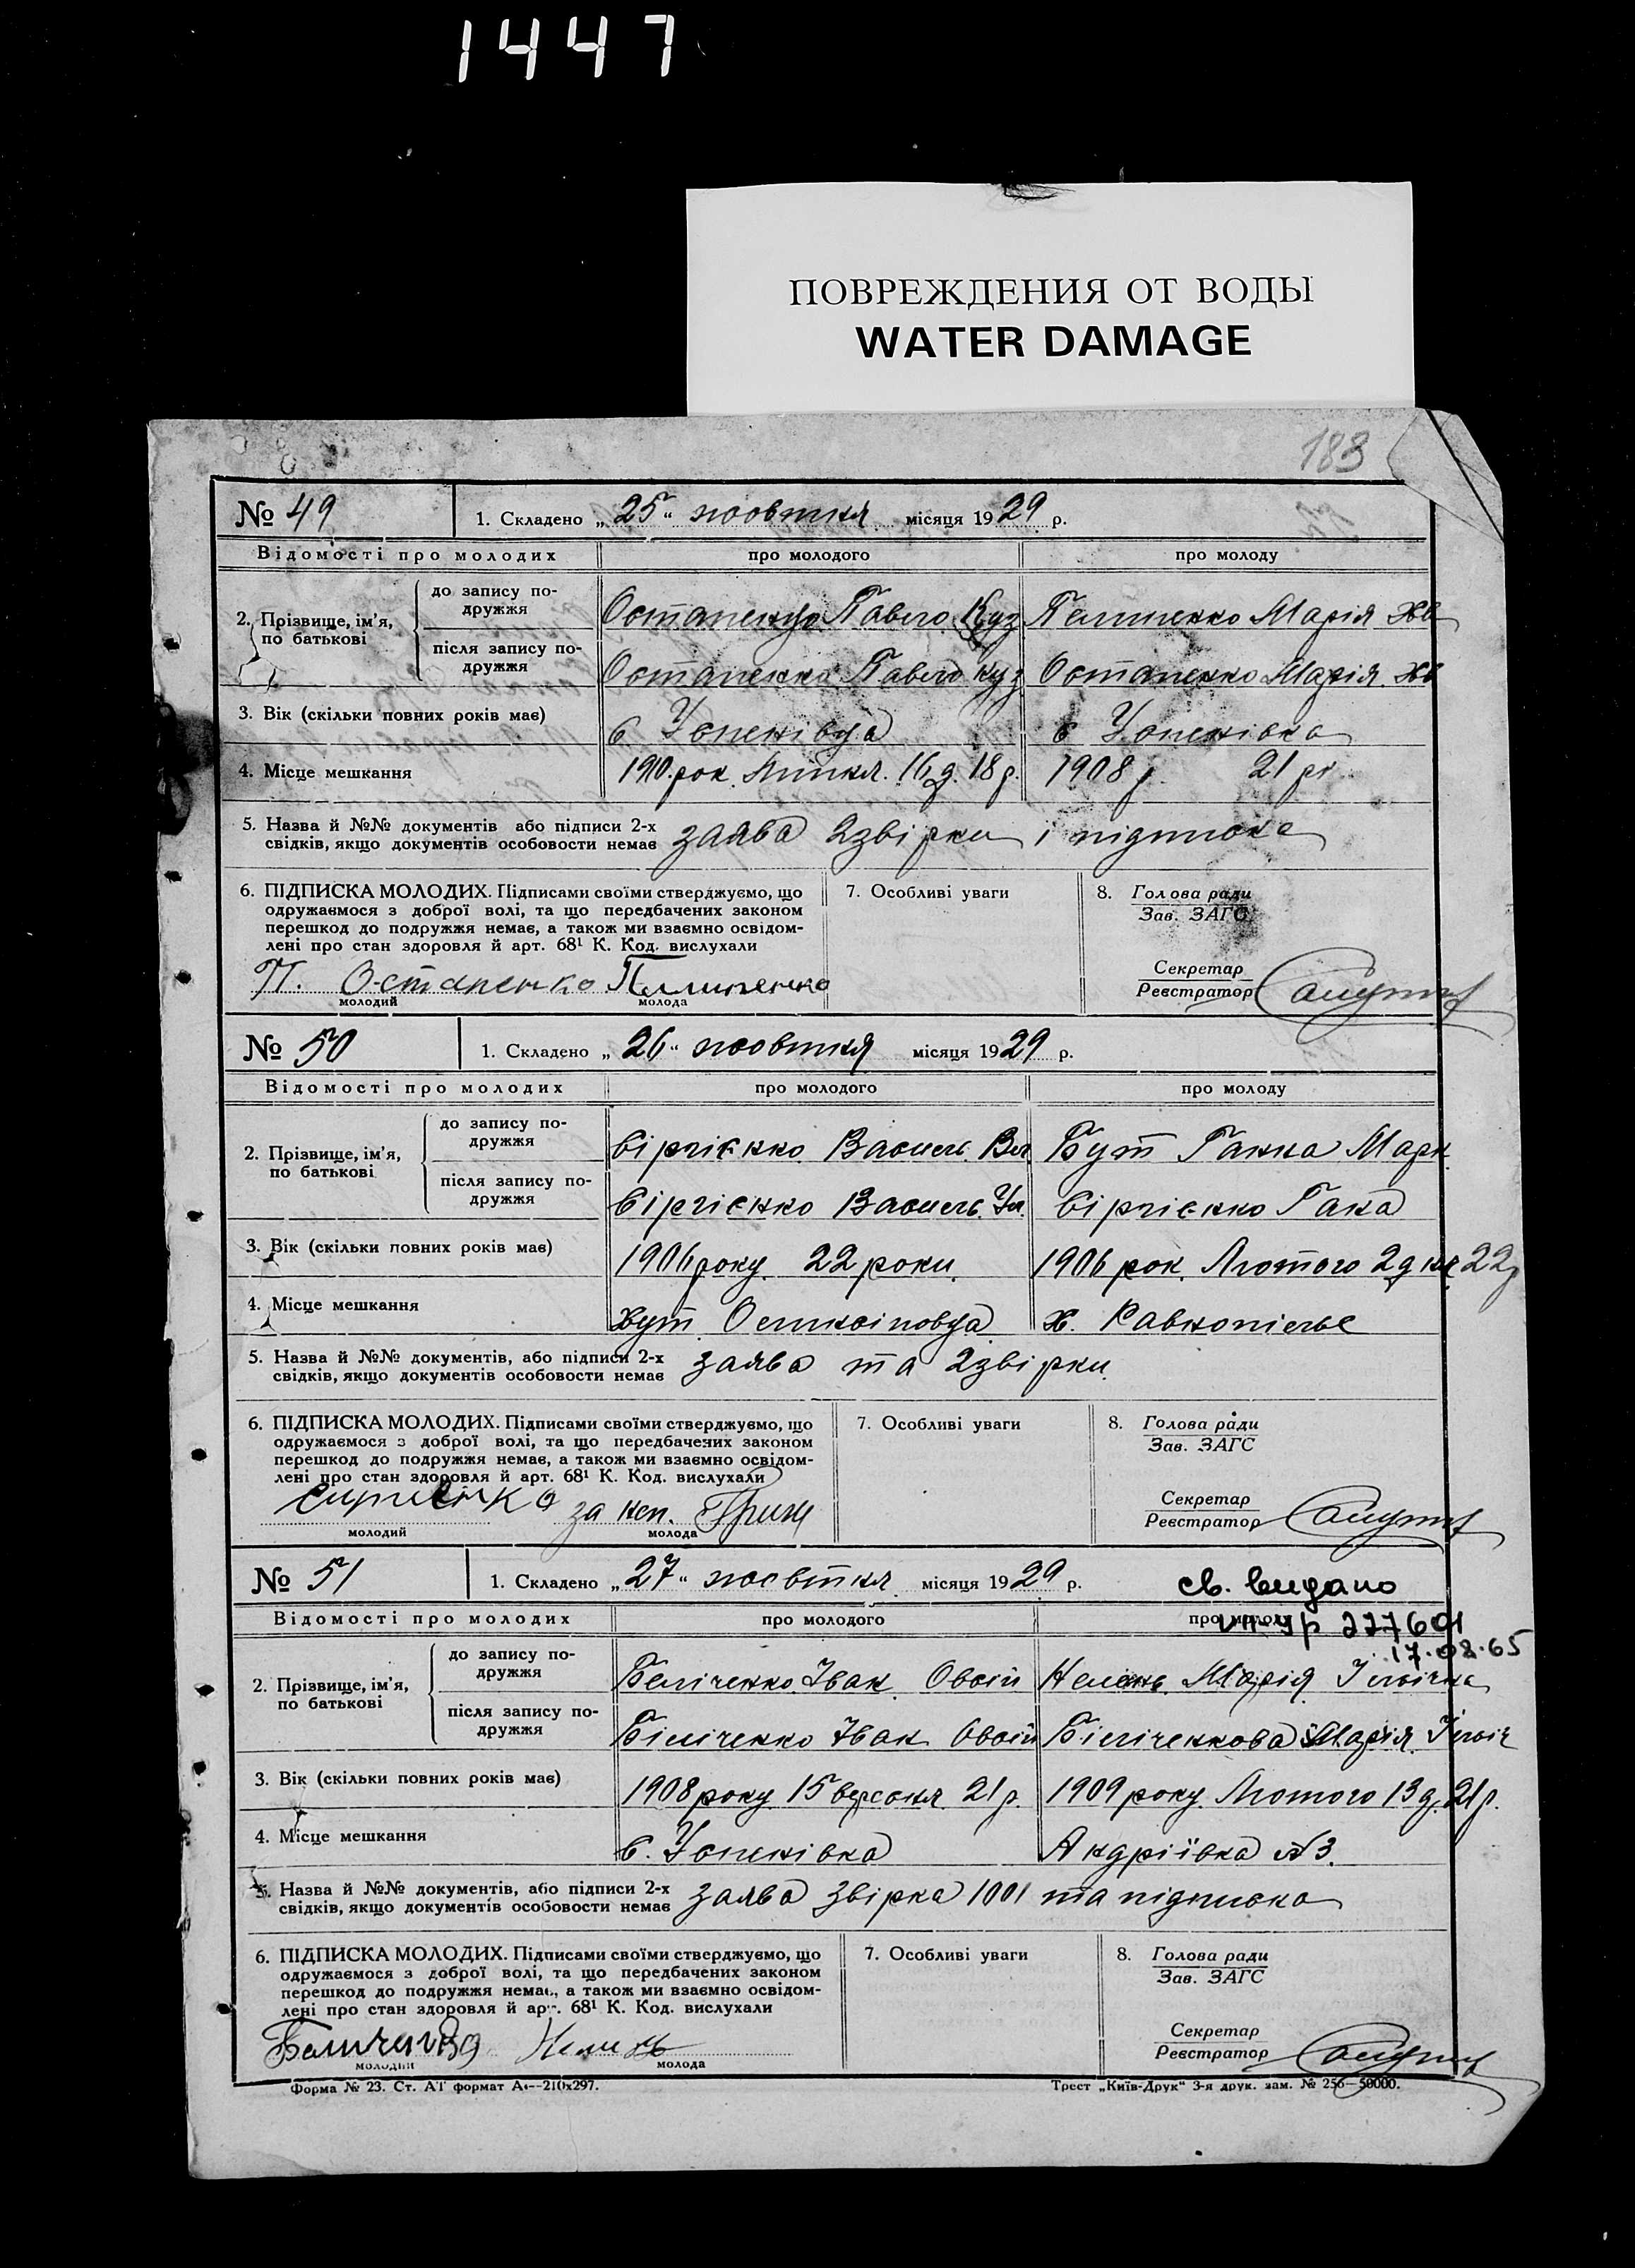 1447
ПОВРЕЖДЕНИЯ ОТ ВОДЫ
WATER DAMAGE
183
№ 49 1. Складено „25“ жовтня місяця 1929 р.
Відомості про молодих про молодого про молоду
2. Прізвище, ім'я, по батькові
до запису подружжя Остапенко Павло Куз Пелипенко Марія Хв
після запису подружжя Остапенко Павло Куз Остапенко Марія Хв
3. Вік (скільки повних років має) с. Успенівка с Успенівка
4. Місце мешкання 1910 рок. Липня. 16 д. 18 р. 1908 р. 21 рі
5. Назва й №№ документів або підписи 2-х
свідків, якщо документів особовости немає заява 2 звірки і підписка
6. ПІДПИСКА МОЛОДИХ. Підписами своїми стверджуємо, що 7. Особливі уваги 8. Голова ради
одружаємося з доброї волі, та що передбачених законом Зав. ЗАГС
перешкод до подружжя немає, а також ми взаємно освідом-
лені про стан здоровля й арт. 68¹ К. Код. вислухали
Секретар
П. Остапенко Реєстратор
молодий молода
№ 50 1. Складено „26“ жовтня місяця 1929 р.
Відомості про молодих про молодого про молоду
2. Прізвище, ім'я, по батькові
до запису подружжя Сіргієнко Василь Бут Ганна Марк
після запису подружжя Сіргієнко Василь Сіргієнко Гана
3. Вік (скільки повних років має) 1906 року 22 роки 1906 рок. Лютого 2 дня 22 р
4. Місце мешкання хут. х. Равнопілье
5. Назва й №№ документів, або підписи 2-х
свідків, якщо документів особовости немає заява та 2 звірки
6. ПІДПИСКА МОЛОДИХ. Підписами своїми стверджуємо, що 7. Особливі уваги 8. Голова ради
одружаємося з доброї волі, та що передбачених законом Зав. ЗАГС
перешкод до подружжя немає, а також ми взаємно освідом-
лені про стан здоровля й арт. 68¹ К. Код. вислухали
Секретар
за неп. Реєстратор
молодий молода
№ 51 1. Складено „27“ жовтня місяця 1929 р. св. видано
Відомості про молодих про молодого про молоду 277601
17.08.65
2. Прізвище, ім'я, по батькові
до запису подружжя Беліченко Іван Овсій Нелень Марія Ільічна
після запису подружжя Біліченко Іван Овсій Біліченкова Марія Ільіч
3. Вік (скільки повних років має) 1908 року 15 вересня 21 р. 1909 року Лютого 13 д. 21 р.
4. Місце мешкання с. Успенівка Андріївка №3
5. Назва й №№ документів, або підписи 2-х
свідків, якщо документів особовости немає заява звірка 1001 та підписка
6. ПІДПИСКА МОЛОДИХ. Підписами своїми стверджуємо, що 7. Особливі уваги 8. Голова ради
одружаємося з доброї волі, та що передбачених законом Зав. ЗАГС
перешкод до подружжя немає, а також ми взаємно освідом-
лені про стан здоровля й арт. 68¹ К. Код. вислухали
Секретар
Реєстратор
молодий молода
Форма № 23. Ст. АТ формат А4—210х297. Трест „Київ-Друк“ 3-я друк. зам. № 256—50000.